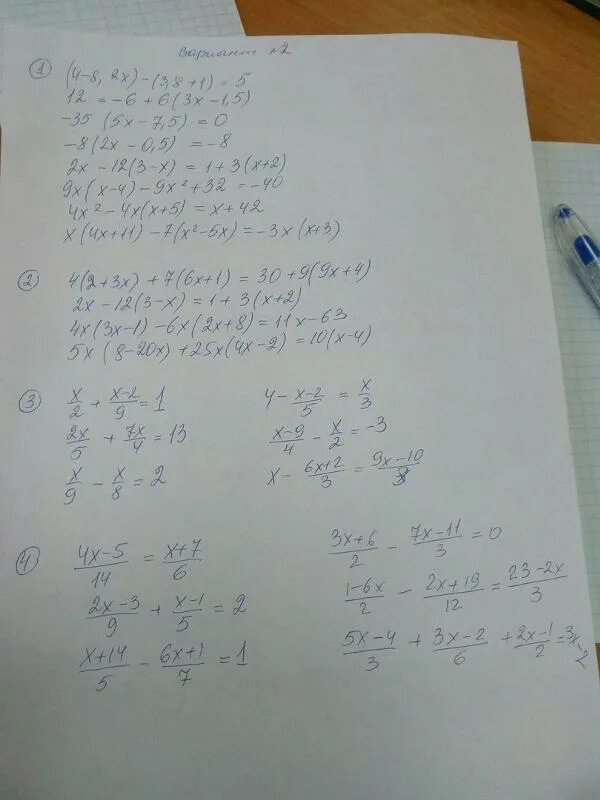 Вариант №2
① (4-8,2x)-(3,8+1)=5
12=-6+6(3x-1,5)
-35(5x-7,5)=0
-8(2x-0,5)=-8
2x-12(3-x)=1+3(x+2)
9x(x-4)-9x²+32=-40
4x²-4x(x+5)=x+42
x(4x+11)-7(x²-5x)=-3x(x+3)
② 4(2+3x)+7(6x+1)=30+9(9x+4)
2x-12(3-x)=1+3(x+2)
4x(3x-1)-6x(2x+8)=11x-63
5x(8-20x)+25x(4x-2)=10(x-4)
③ x/2+(x-2)/9=1
2x/5+7x/4=13
x/9-x/8=2
4-(x-2)/5=x/3
(x-9)/4-x/2=-3
x-(6x+2)/3=(9x-10)/
④ (4x-5)/14=(x+7)/6
(2x-3)/9+(x-1)/5=2
(x+14)/5-(6x+1)/7=1
(3x+6)/2-(7x-11)/3=0
(1-6x)/2-(2x+19)/12=(23-2x)/3
(5x-4)/3+(3x-2)/6+(2x-1)/2=3x-2